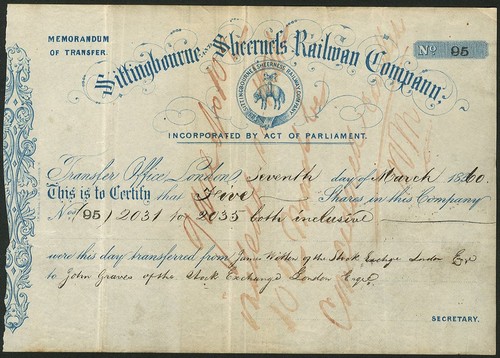 MEMORANDUM
OF TRANSFER.
Sittingbourne AND Sheerness Railway Company.
No 95
SITTINGBOURNE & SHEERNESS RAILWAY COMPANY
INCORPORATED BY ACT OF PARLIAMENT.
Transfer Office, London, seventh day of March 1860
This is to Certify that Five Shares in this Company
Nos 95/2031 to 2035 both inclusive
were this day transferred from James of the Stock Exchange London Esqre
to John Graves of the Stock Exchange London Esqre
SECRETARY.